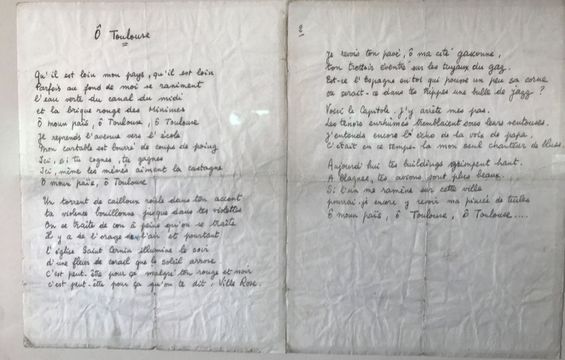 Ô Toulouse
Qu'il est loin mon pays, qu'il est loin
Parfois au fond de moi se raniment
L'eau verte du canal du midi
et la brique rouge des Minimes
Ô moun païs, ô Toulouse, ô Toulouse
Je reprends l'avenue vers l'école
Mon cartable est bourré de coups de poing
Ici, si tu cognes, tu gagnes
Ici, même les mémés aiment la castagne
Ô moun païs, ô Toulouse
Un torrent de cailloux roule dans ton accent
Ta violence bouillonne jusque dans tes violettes
On se traite de con à peine qu'on se traite
Il y a de l'orage dans l'air et pourtant
L'église Saint Sernin illumine le soir
d'une fleur de corail que le soleil arrose
C'est peut-être pour ça malgré ton rouge et noir
c'est peut-être pour ça qu'on te dit, Ville Rose.
2
Je revois ton pavé, ô ma cité gasconne,
ton trottoir éventré sur les tuyaux du gaz.
Est-ce l'Espagne en toi qui pousse un peu sa corne
ou serait-ce dans tes tripes une bulle de jazz ?
Voici le Capitole. J'y arrête mes pas.
Les ténors enrhumés tremblaient sous leurs ventouses.
J'entends encore l'écho de la voix de papa.
C'était en ce temps-là mon seul chanteur de blues.
Aujourd'hui tes buildings grimpent haut.
A Blagnac, tes avions sont plus beaux.....
Si l'un me ramène sur cette ville
pourrai-je encore y revoir ma pincée de tuiles
Ô moun païs, ô Toulouse, ô Toulouse....